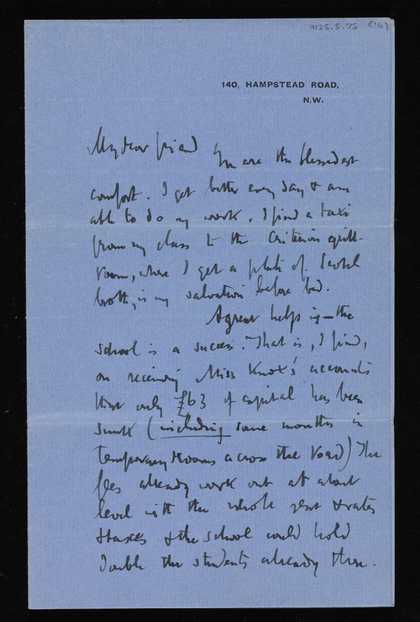 140, HAMPSTEAD ROAD,
N.W.
My dear friend You are the blessedest
comfort. I get better every day & am
able to do my work. I find a taxi
from my class to the Criterion grill-
room, where I get a plate of Scotch
broth, is my salvation before bed.
A great help is — the
school is a success. That is, I find,
on receiving Miss Knox's accounts
that only £63 of capital has been
sunk (including some months in
temporary rooms across the road) The
fees already work out at about
level with the whole rent & rates
& taxes & the school could hold
double the students already there.